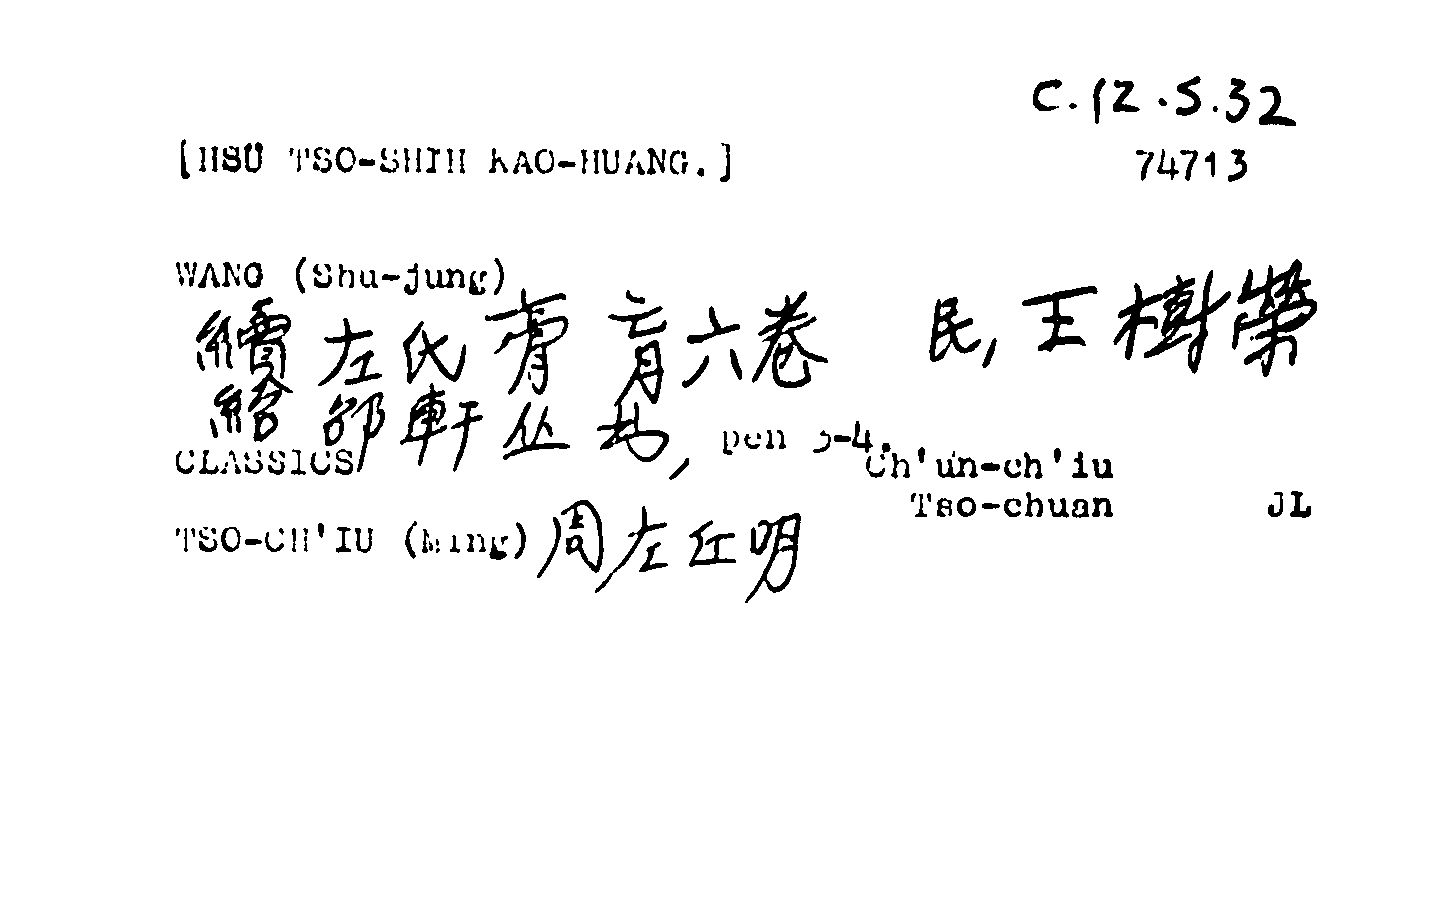 C.12.5.32
[HSÜ TSO-SHIH KAO-HUANG.] 74713
WANG (Shu-jung)
續左氏膏肓六卷 民, 王樹榮
紹邵軒丛书, pen 3-4.
CLASSICS Ch'un-ch'iu
Tso-chuan JL
TSO-CH'IU (Ming) 周左丘明